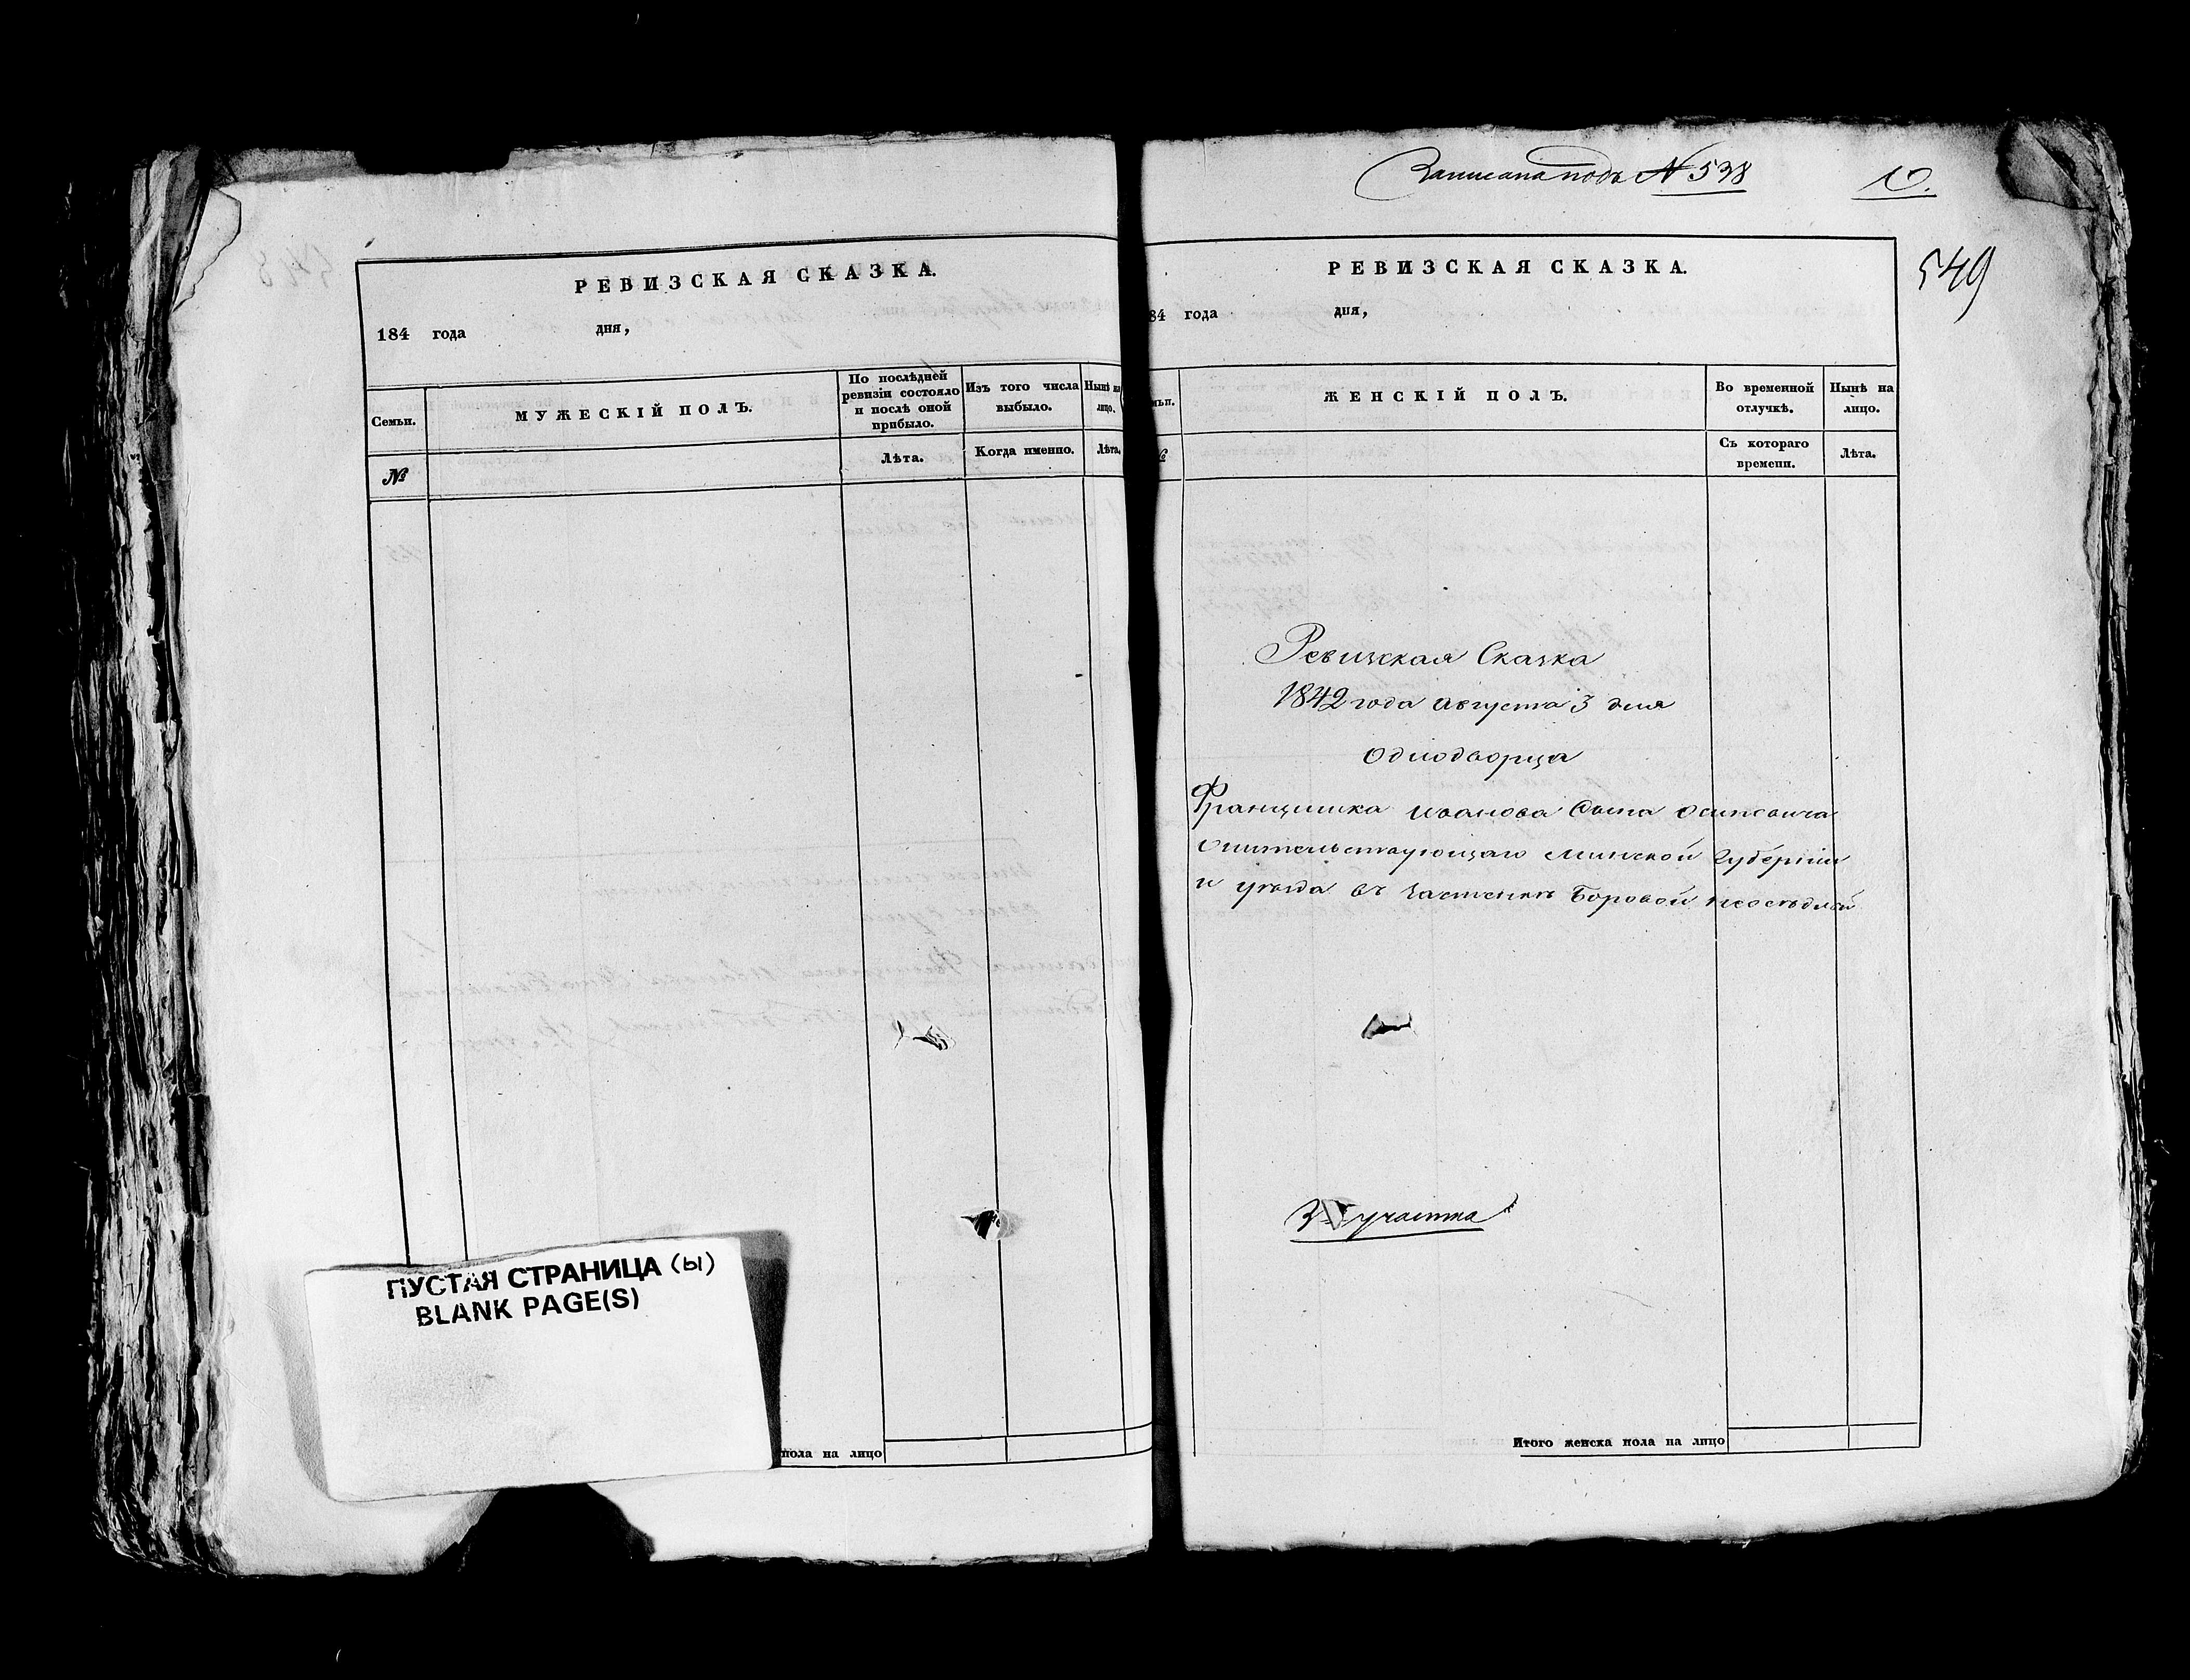 РЕВИЗСКАЯ СКАЗКА.
184 года дня,
Семьи.
МУЖЕСКІЙ ПОЛЪ.
По послѣдней
ревизіи состояло
и послѣ оной
прибыло.
Изъ того числа
выбыло.
Нынѣ на
лицо.
№
Лѣта.
Когда именно.
Лѣта.
ПУСТАЯ СТРАНИЦА (ы)
BLANK PAGE(S)
пола на лицо
Записана подъ № 538
549
РЕВИЗСКАЯ СКАЗКА.
84 года дня,
ЖЕНСКІЙ ПОЛЪ.
Во временной
отлучкѣ.
Нынѣ на
лицо.
Съ котораго
времени.
Лѣта.
Ревизская Сказка
1842 года августа 3 дня
Однодворца
Францишка Иванова сына Осиповича
жительствующаго Минской Губерніи
и уѣзда въ застенкѣ Боровой неосѣдлой
3 участка
Итого женска пола на лицо